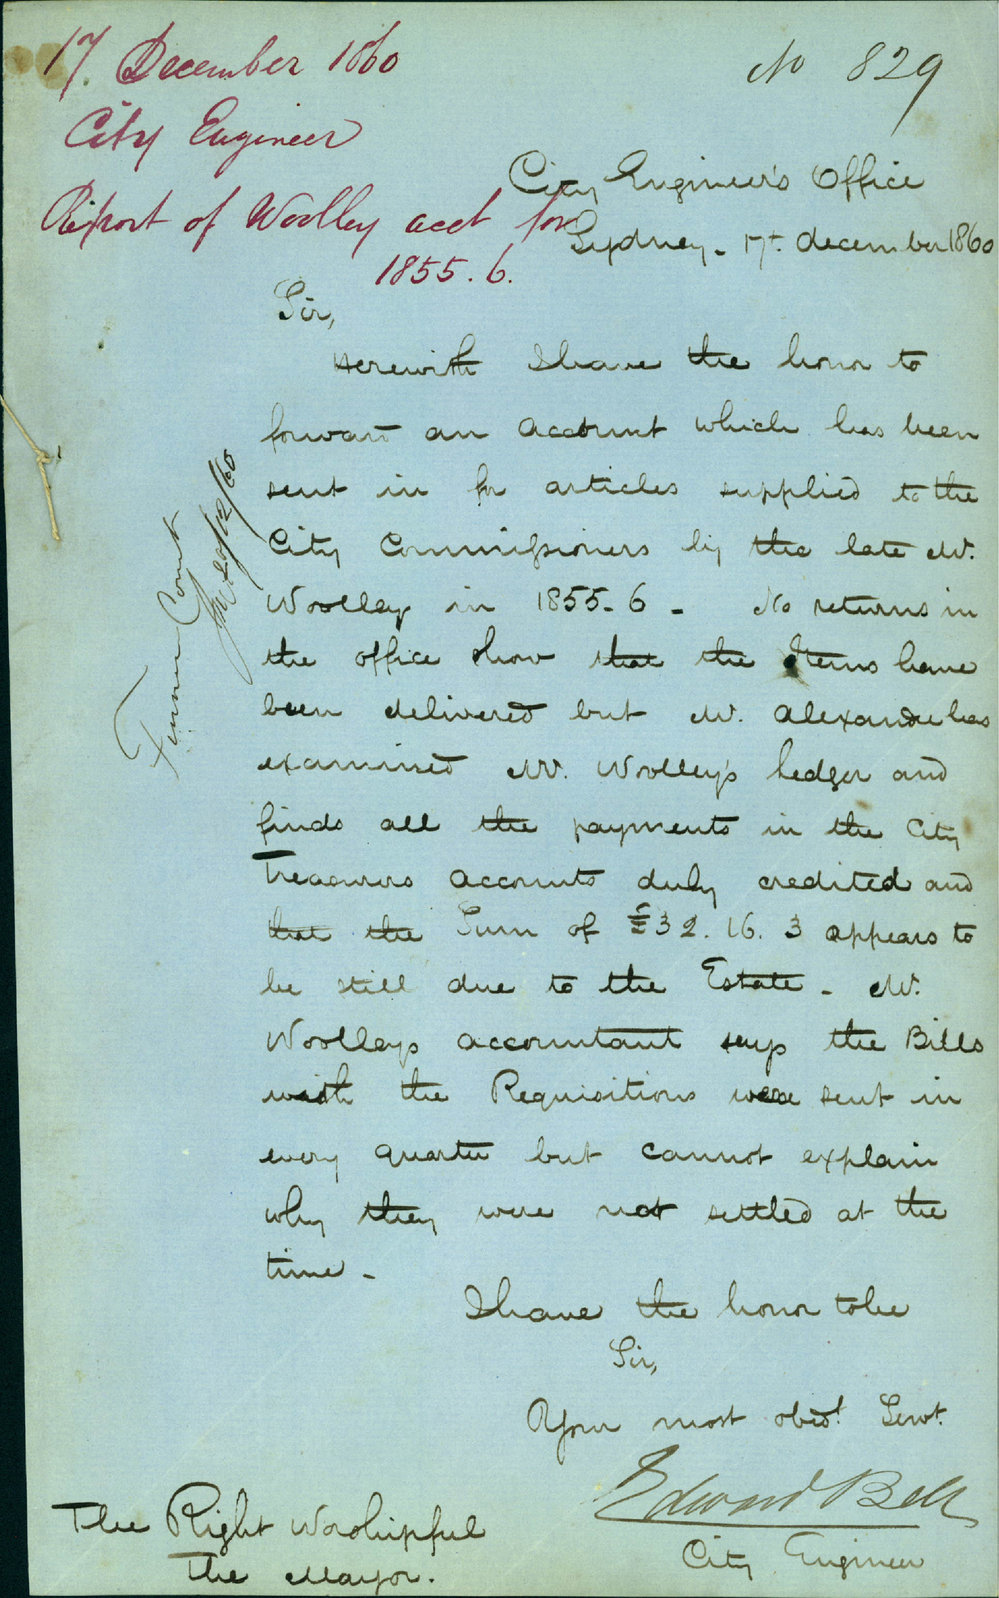 17 December 1860
City Engineer
Report of Woolley acct for
1855.6.
No 829
City Engineer's Office
Sydney - 17t. december 1860
Sir,
Herewith I have the honor to
forward an account which has been
sent in for articles supplied to the
City Commissioners by the late Mr.
Woolley in 1855-6 - No returns in
the office show that the Items have
been delivered but Mr. Alexander has
examined Mr. Woolley's ledger and
finds all the payments in the City
Treasurers accounts duly credited and
that the Sum of £32.16.3 appears to
be still due to the Estate - Mr.
Woolleys accountant says the Bills
with the Requisitions were sent in
every quarter but cannot explain
why they were not settled at the
time -
I have the honor to be
Sir,
Your most obedt. Servt.
Edward Bell
City Engineer
The Right Worshipful
The Mayor.
20/12/60